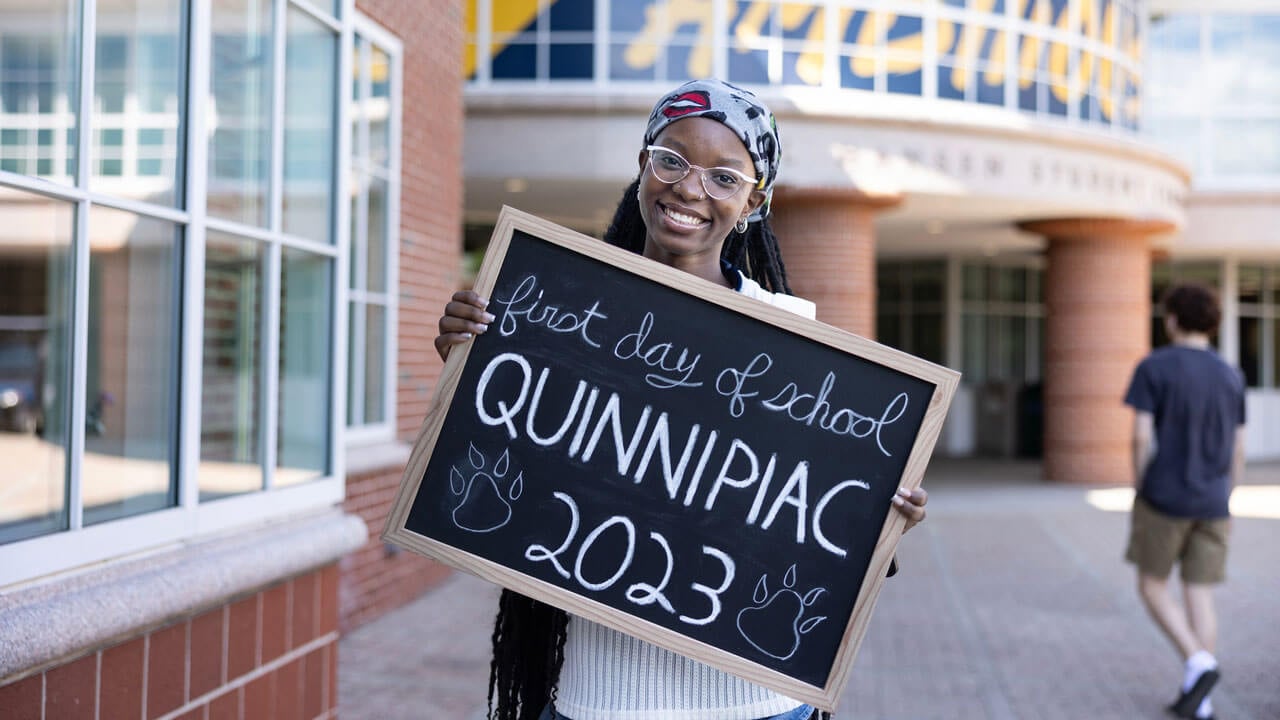 first day of school
QUINNIPIAC
2023